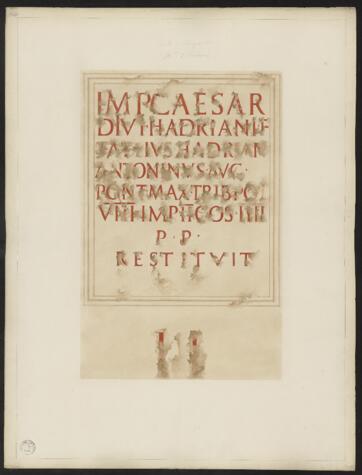 IMP CAESAR
DIVI HADRIANI F
HADRIAN
ANTONINVS AVG ·
PONT MAX TRIB POT
IMP II COS IIII
P · P ·
RESTITVIT